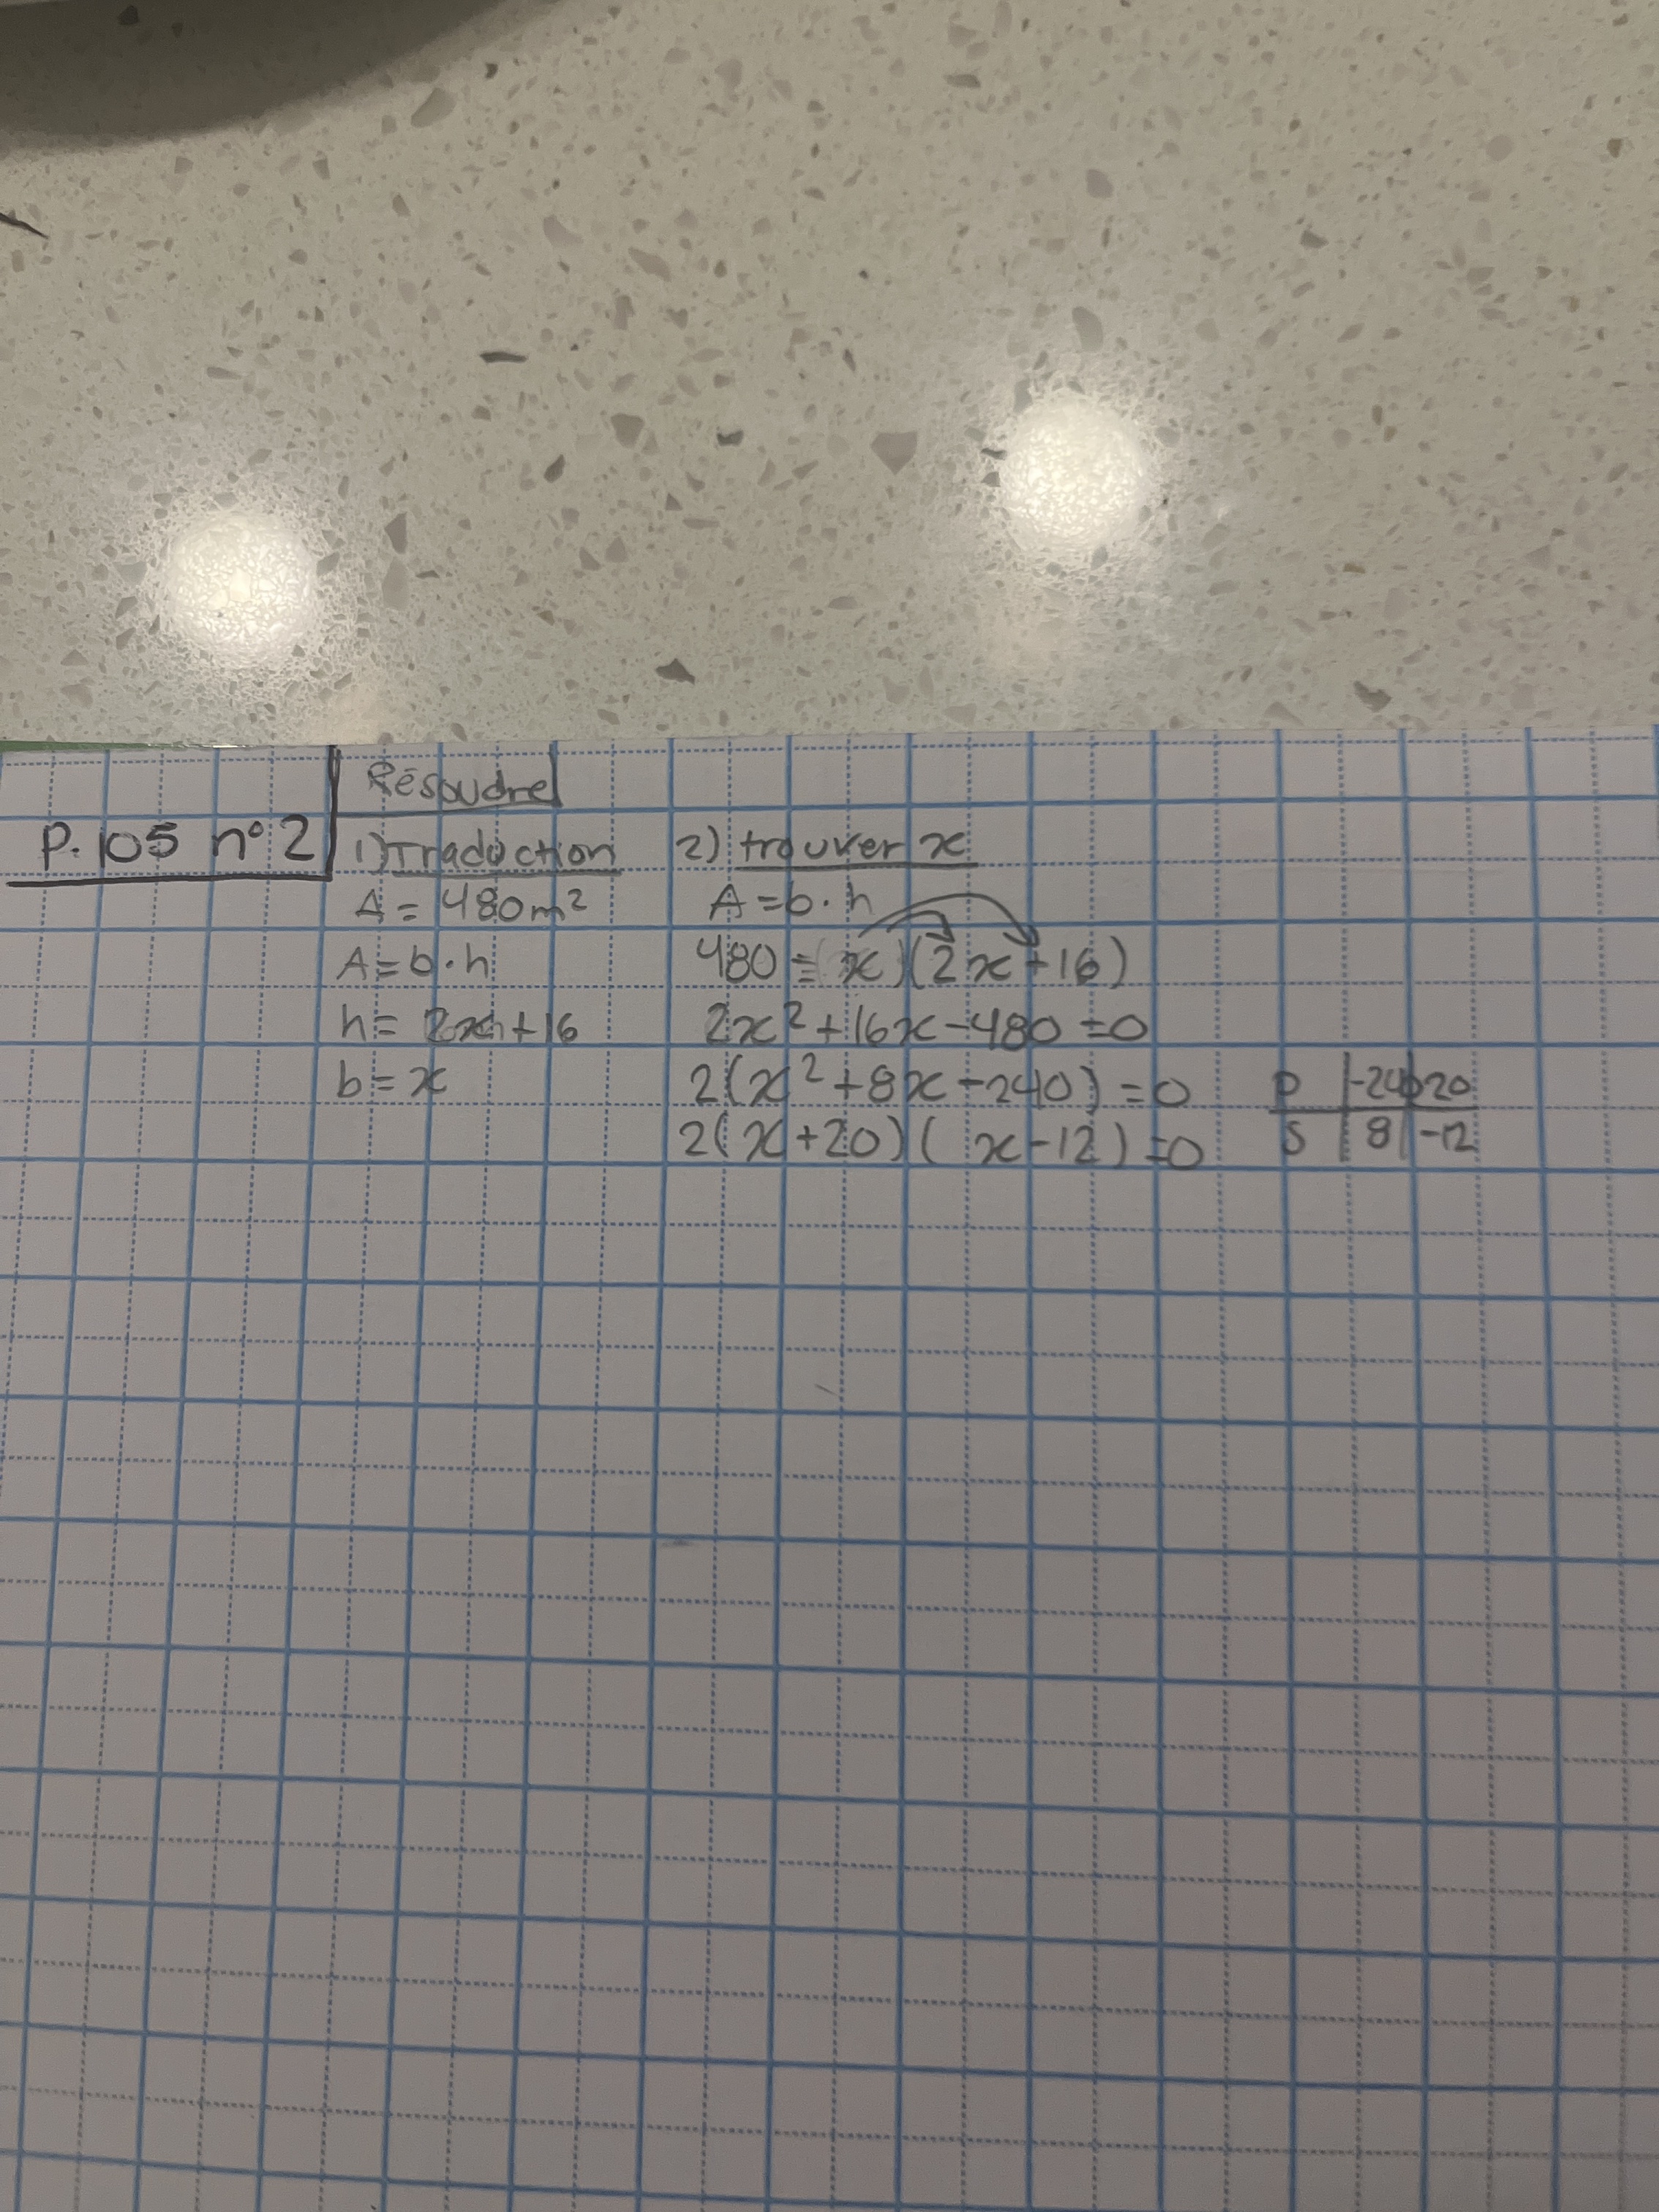 P. 105 n° 2
Résoudre
1) Traduction
A = 480m²
A = b·h
h = 2x+16
b = x
2) trouver x
A = b·h
480 = (x)(2x+16)
2x²+16x-480=0
2(x²+8x-240)=0
2(x+20)(x-12)=0
P | -240 | 20
S | 8 | -12